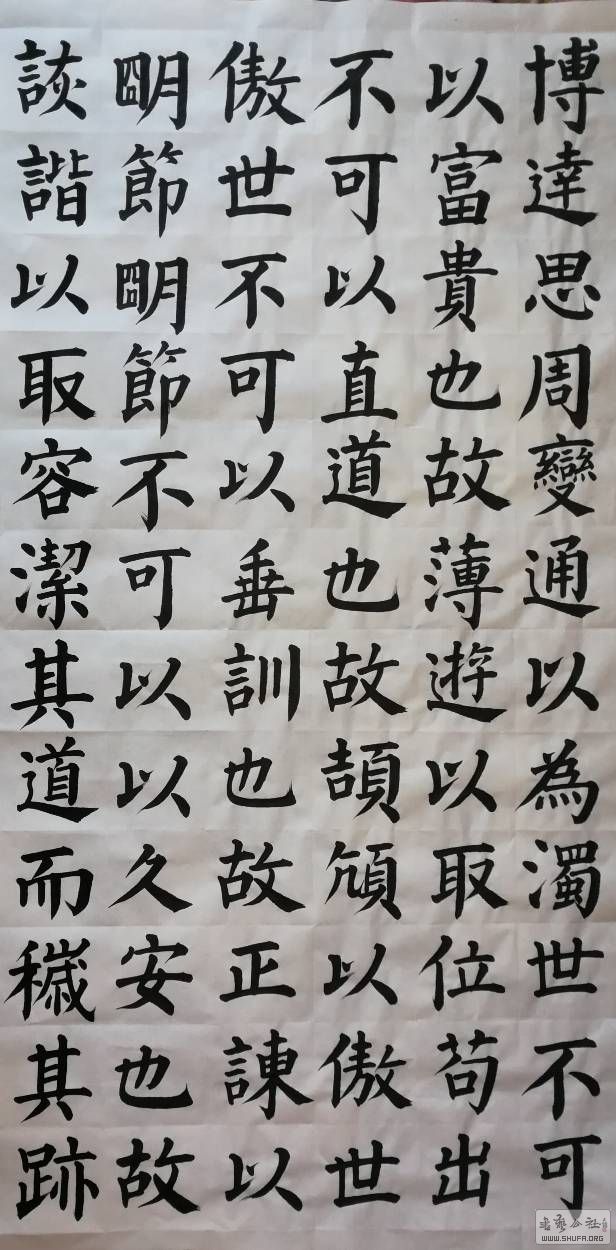 博達思周變通以為濁世不可
以富貴也故薄遊以取位苟出
不可以直道也故頡頏以傲世
傲世不可以垂訓也故正諫以
明節明節不可以以久安也故
談諧以取容潔其道而穢其跡
WWW.SHUFA.ORG